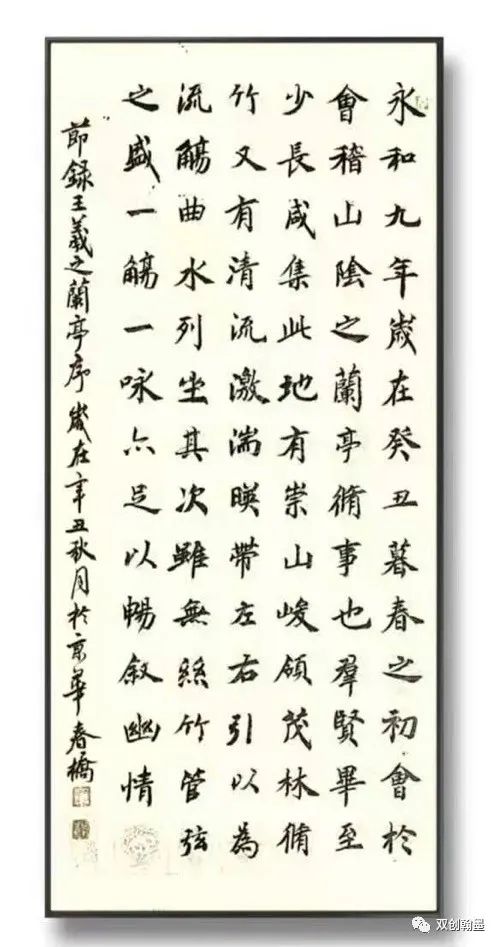 永和九年歲在癸丑暮春之初會於
會稽山陰之蘭亭脩事也羣賢畢至
少長咸集此地有崇山峻領茂林脩
竹又有清流激湍暎帶左右引以為
流觴曲水列坐其次雖無絲竹管弦
之盛一觴一咏亦足以暢叙幽情
節録王羲之蘭亭序歲在辛丑秋月於京華春橋
双创翰墨